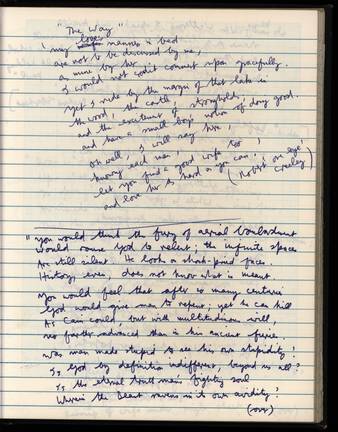 "The Way"
My love's manners in bed
are not to be discussed by me,
as mine by her
I would not credit comment upon gracefully.
Yet I ride by the margin of that lake in
the wood, the castle,
and the excitement of strongholds;
and have a small boy's notion of doing good.
Oh well, I will say here,
knowing each man,
let you find a good wife too,
and love her as hard as you can.
(Robert Creeley)
"You would think the fury of aerial bombardment
Would rouse God to relent; the infinite spaces
Are still silent. He looks on shock-pried faces.
History, even, does not know what is meant.
You would feel that after so many centuries
God would give man to repent; yet he can kill
As Cain could, but with multitudinous will,
No farther advanced than in his ancient furies.
Was man made stupid to see his own stupidity?
Is God by definition indifferent, beyond us all?
Is the eternal truth man's fighting soul
Wherein the Beast ravens in its own avidity?
(over)